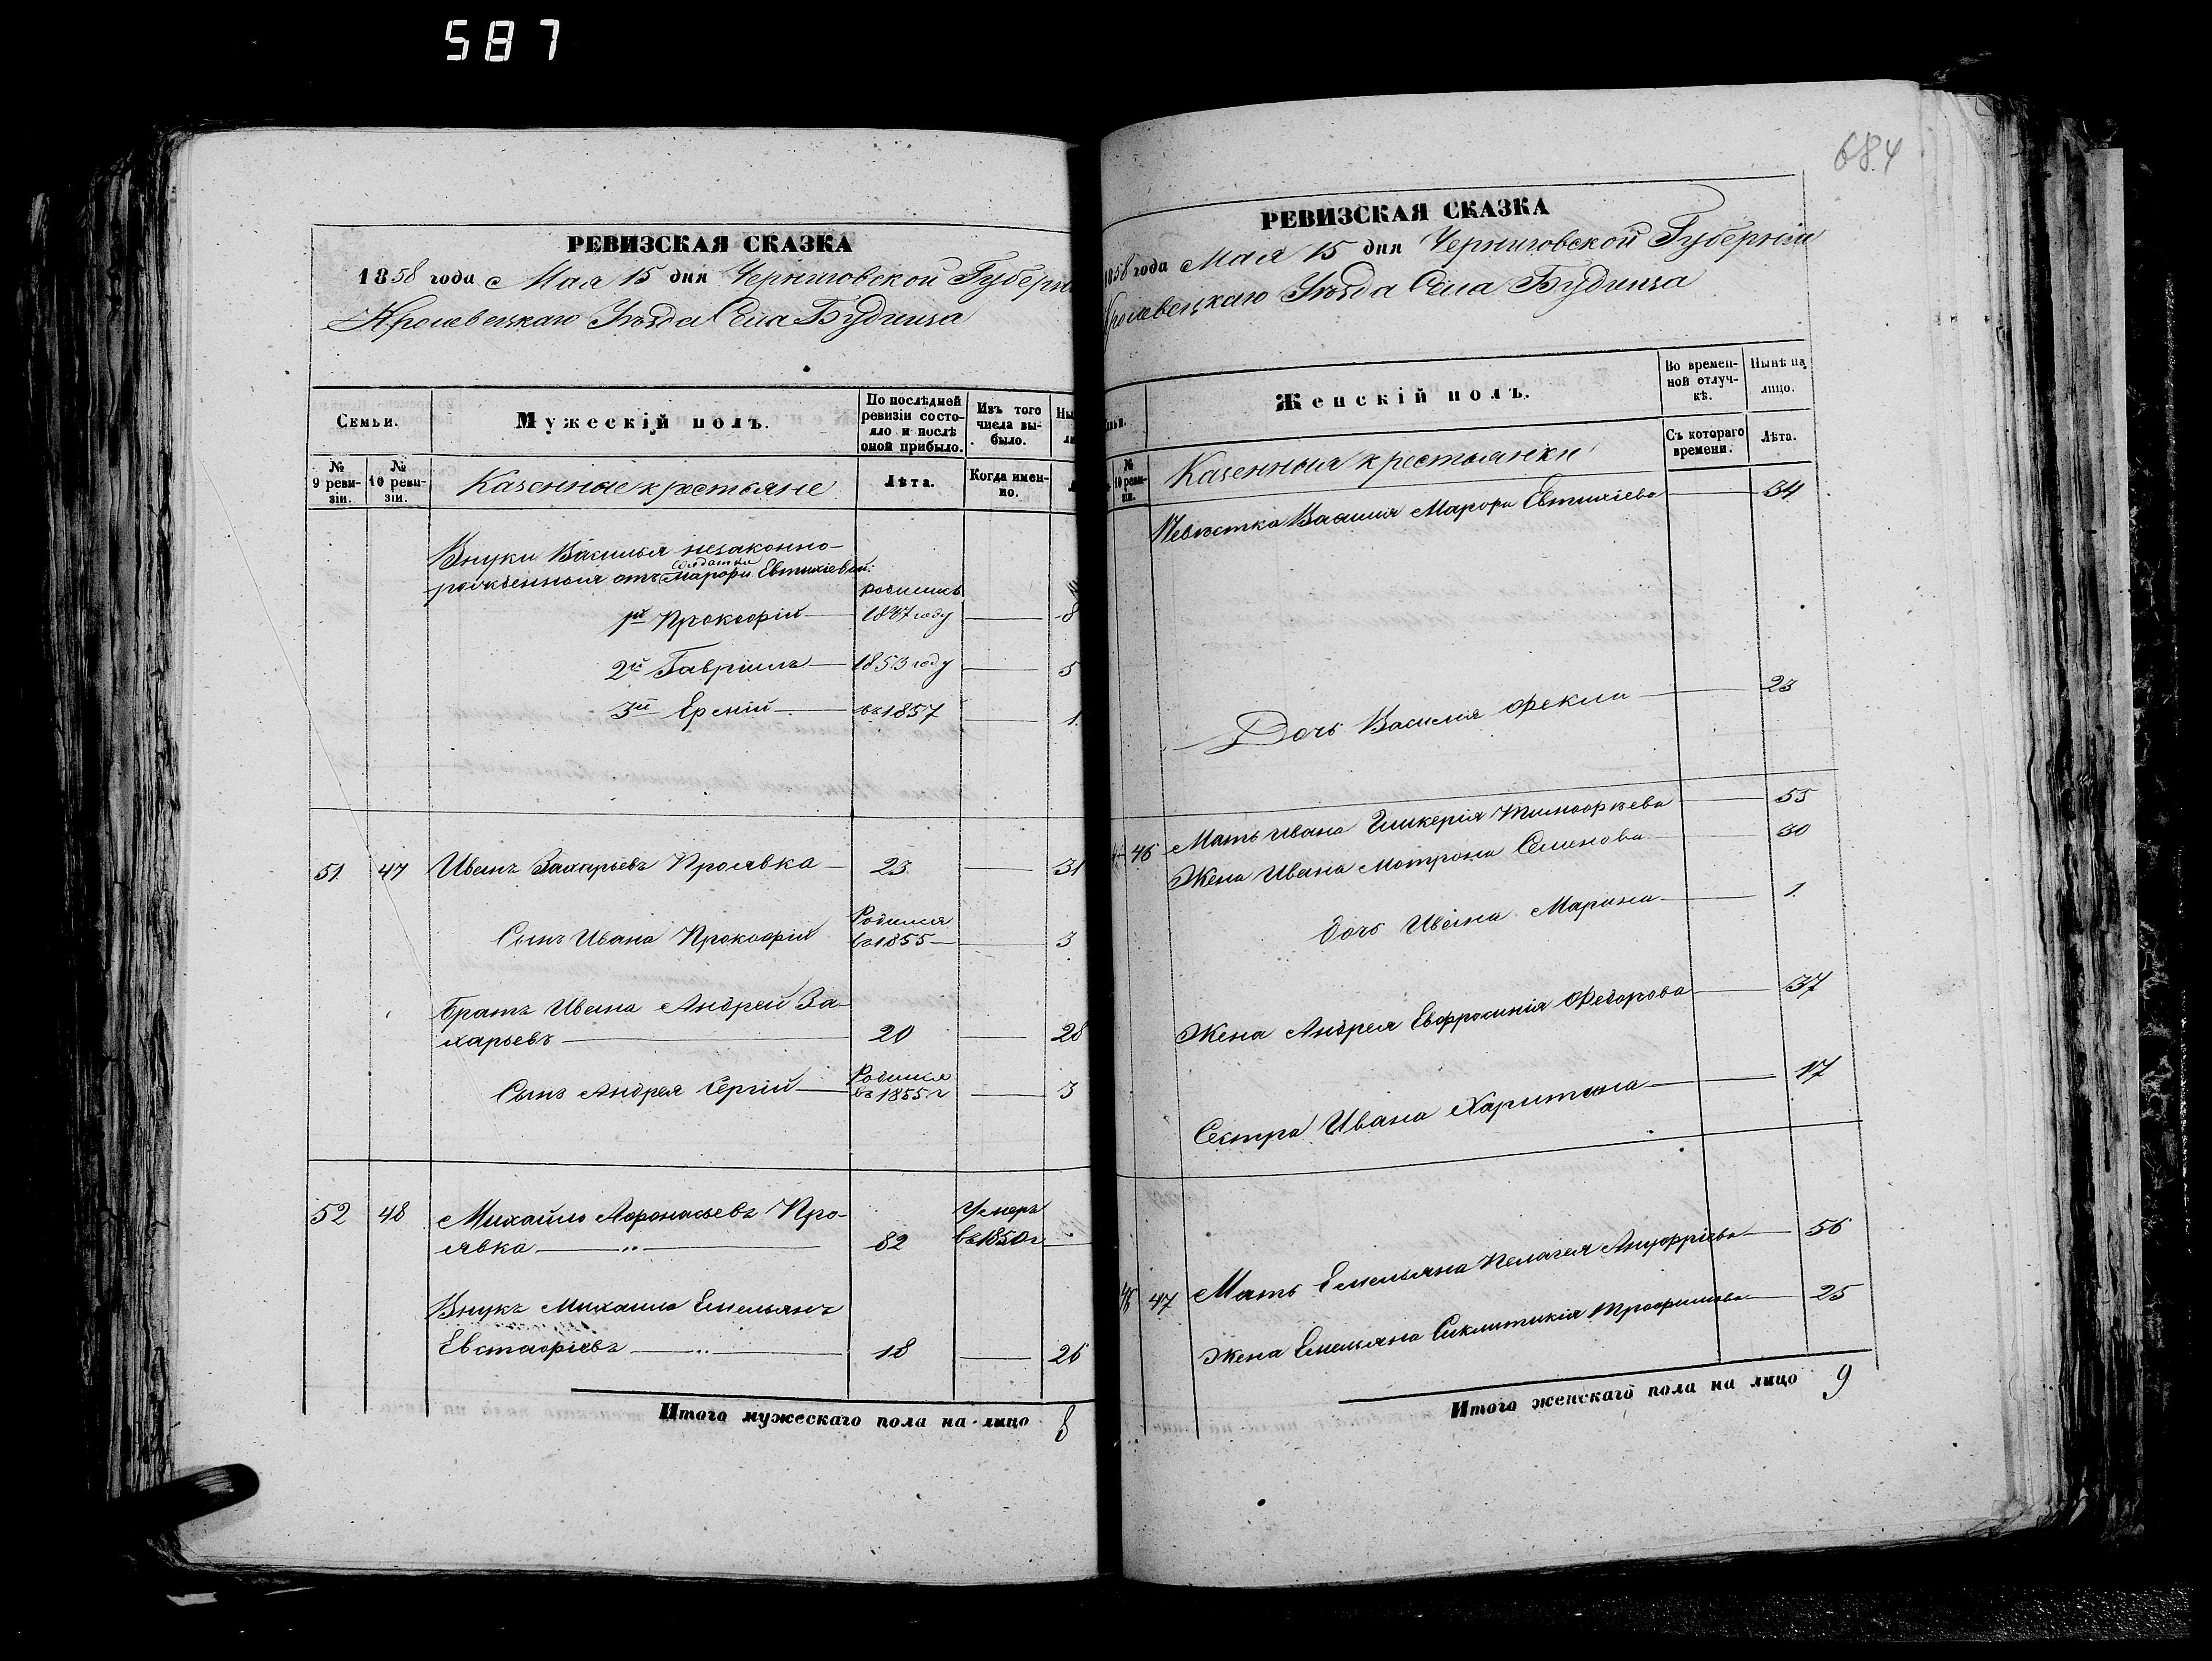 587
РЕВИЗСКАЯ СКАЗКА
1858 года Мая 15 дня Черниговской Губерн
Кролевецкаго Уѣзда Села Будища
Семьи.
Мужескій полъ.
По послѣдней ревизіи состояло и послѣ оной прибыло.
Изъ того числа выбыло.
№ 9 ревизіи.
№ 10 ревизіи.
Казенные крестьяне
Лѣта.
Когда именно.
Внуки Василья незаконно-
рожденныя отъ солдатки Марфы Евтихіевой:
родились
1й Прокофій — 1847 году — 8
2й Гаврилъ — 1853 году — 5
3й — въ 1857 — 1.
51. 47 Иванъ Захарьевъ Проявка — 23. — 31
Сынъ Ивана Прокофій Родился въ 1855 — 3
Братъ Ивана Андрей За-
харьевъ — 20 — 28
Сынъ Андрея Сергій — Родился въ 1855 г — 3
52 48 Михайло Афонасьевъ Про-
явка — 82 Умеръ въ 1850 г
Внукъ Михаила Емельянъ
Евстафіевъ — 18 — 26
Итого мужескаго пола на-лицо 8
684
РЕВИЗСКАЯ СКАЗКА
1858 года Мая 15 дня Черниговской Губерніи
Кролевецкаго Уѣзда Села Будища
№ 10 ревизіи.
Женскій полъ.
Во временной отлучкѣ.
Нынѣ на лицо.
Казенныя крестьянки
Съ котораго времени.
Лѣта.
Невѣстка Василія Марфа Евтихіева — 34
Дочь Василія Фекла — 23
46 Мать Ивана Гликерія Тимофѣева — 55
Жена Ивана Мотрона Семенова — 30
дочь Ивана Марина — 1.
Жена Андрея Евфросинія Федорова — 37
Сестра Ивана Харитина — 17
47 Мать Емельяна Пелагея Ануфріева — 56
Жена Емельяна Сиклитикія Трофимова — 25
Итого женскаго пола на лицо 9